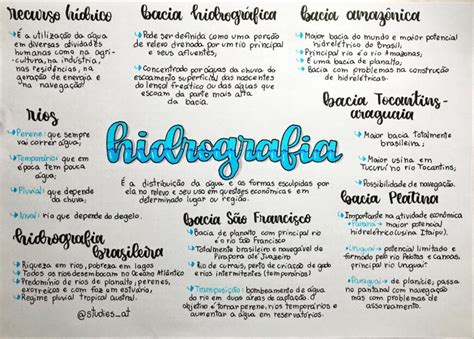 recurso hídrico
É a utilização da água
em diversas atividades
humanas como na agri-
cultura, na indústria,
nas residências, na
geração de energia e
"na navegação"
bacia hidrográfica
Pode ser definida como uma porção
de relevo drenada por um rio principal
e seus afluentes;
Concentrado por águas da chuva do
escoamento superficial das nascentes
do lençol freático ou das águas que
escoam da parte mais alta
da bacia.
bacia amazônica
Maior bacia do mundo e maior potencial
hidrelétrico do Brasil;
Principal rio é o rio Amazonas,
É uma bacia de planalto;
Bacia com problemas na construção
de hidrelétricas.
rios
Perene: que sempre
vai correr água;
Temporário: que em
época tem pouca
água;
Pluvial: que depende
da chuva;
Nival: rio que depende do degelo.
hidrografia
É a distribuição da água e as formas esculpidas por
ela no relevo e seu uso em questões econômicas em
determinado lugar ou região.
bacia Tocantins-
araguaia
Maior bacia totalmente
brasileira;
Maior usina em
Tucuruí no rio Tocantins;
Possibilidade de navegação.
hidrografia
brasileira
Riqueza em rios, pobreza em lagos
Todos os rios desembocam no Oceano Atlântico
Predomínio de rios de planalto, perenes,
exorreicos e com foz em estuário;
Regime pluvial tropical austral.
@studies_at
bacia São Francisco
Bacia de planalto com principal rio
é o rio São Francisco
Totalmente brasileiro e navegável de
Pirapora até Juazeiro
Rio de currais, pela criação de gado
e rios intermitentes (temporário)
Transposição: bombeamento de água
do rio em duas áreas de captação. O
objetivo é tornar perene, rios temporários e
aumentar a água em reservatórios.
bacia Platina
Importante na atividade econômica
Paraná → maior potencial
hidrelétrico (usina Itaipu).
Uruguai → potencial limitado e
formado pelo rio Pelotas e Canoas,
principal rio Uruguai.
Paraguai → de planície, passa
no pantanal mas com
problemas de
assoreamento.